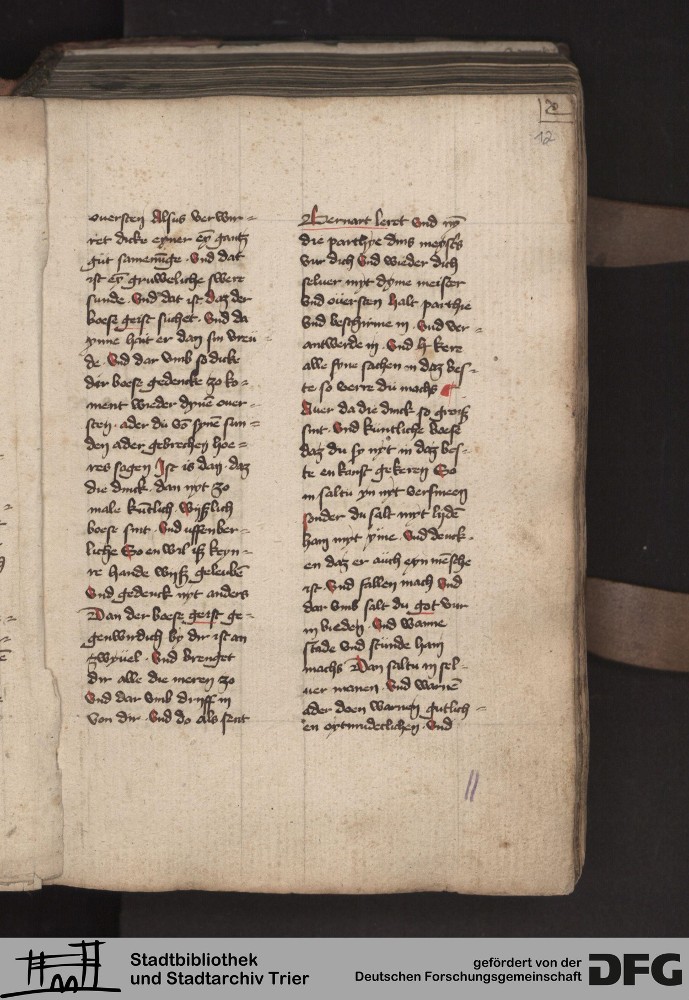 20
12
ouersten Alsus verwur-
ret dicke eyner eȳ gantz
gut samenūge. Vnd dat
ist eȳ gruweliche swere
sunde. Vnd dat ist daz der
boese geist suchet. Vnd da
ynne hait er dan sin vreu-
de. Vnd dar vmb so dicke
dir boese gedencke zo ko-
ment wieder dynē ouer-
sten. ader du vō synē sun-
den ader gebrechen hoe-
res sagen Ist is dan. daz
die dinck. dan nyt zo
male kūtlich. wyslich
boese sint. Vnd uffenber-
liche So en wil is keyn-
re hande wys geleubē
Vnd gedenck nyt anders
Dan der boese geist ge-
genwirdich by dir ist an
zwyuel. Vnd brenget
dir alle die meren zo
Vnd dar vmb dryff in
von dir. Vnd do als sent
Bernart leret Vnd nȳ
die parthye dins meysters
vur dich Vnd wieder dich
seluer myt dyme meister
Vnd ouersten halt parthie
Vnd beschirme in. Vnd ver-
antwerde in. Vnd kere
alle syne sachen in daz bes-
te so verre du machs
Auer da die dinck so grois
sint. Vnd kūntliche boese
daz du sy nyt in daz bes-
te en kanst gekeren So
in saltu yn nyt versmeen
sonder du salt myt lydē
hain myt yme. Vnd denck-
en daz er auch eyn mēsche
ist. Vnd fallen mach Vnd
dar vmb salt du got vur
in bieden. Vnd wanne
stade vnd stunde hain
machs Dan saltu in sel-
uer manen. Vnd warnē
ader doen warnen gutlich-
en oytmudeclichen. Vnd
11
Stadtbibliothek
und Stadtarchiv Trier
gefördert von der
Deutschen Forschungsgemeinschaft
DFG